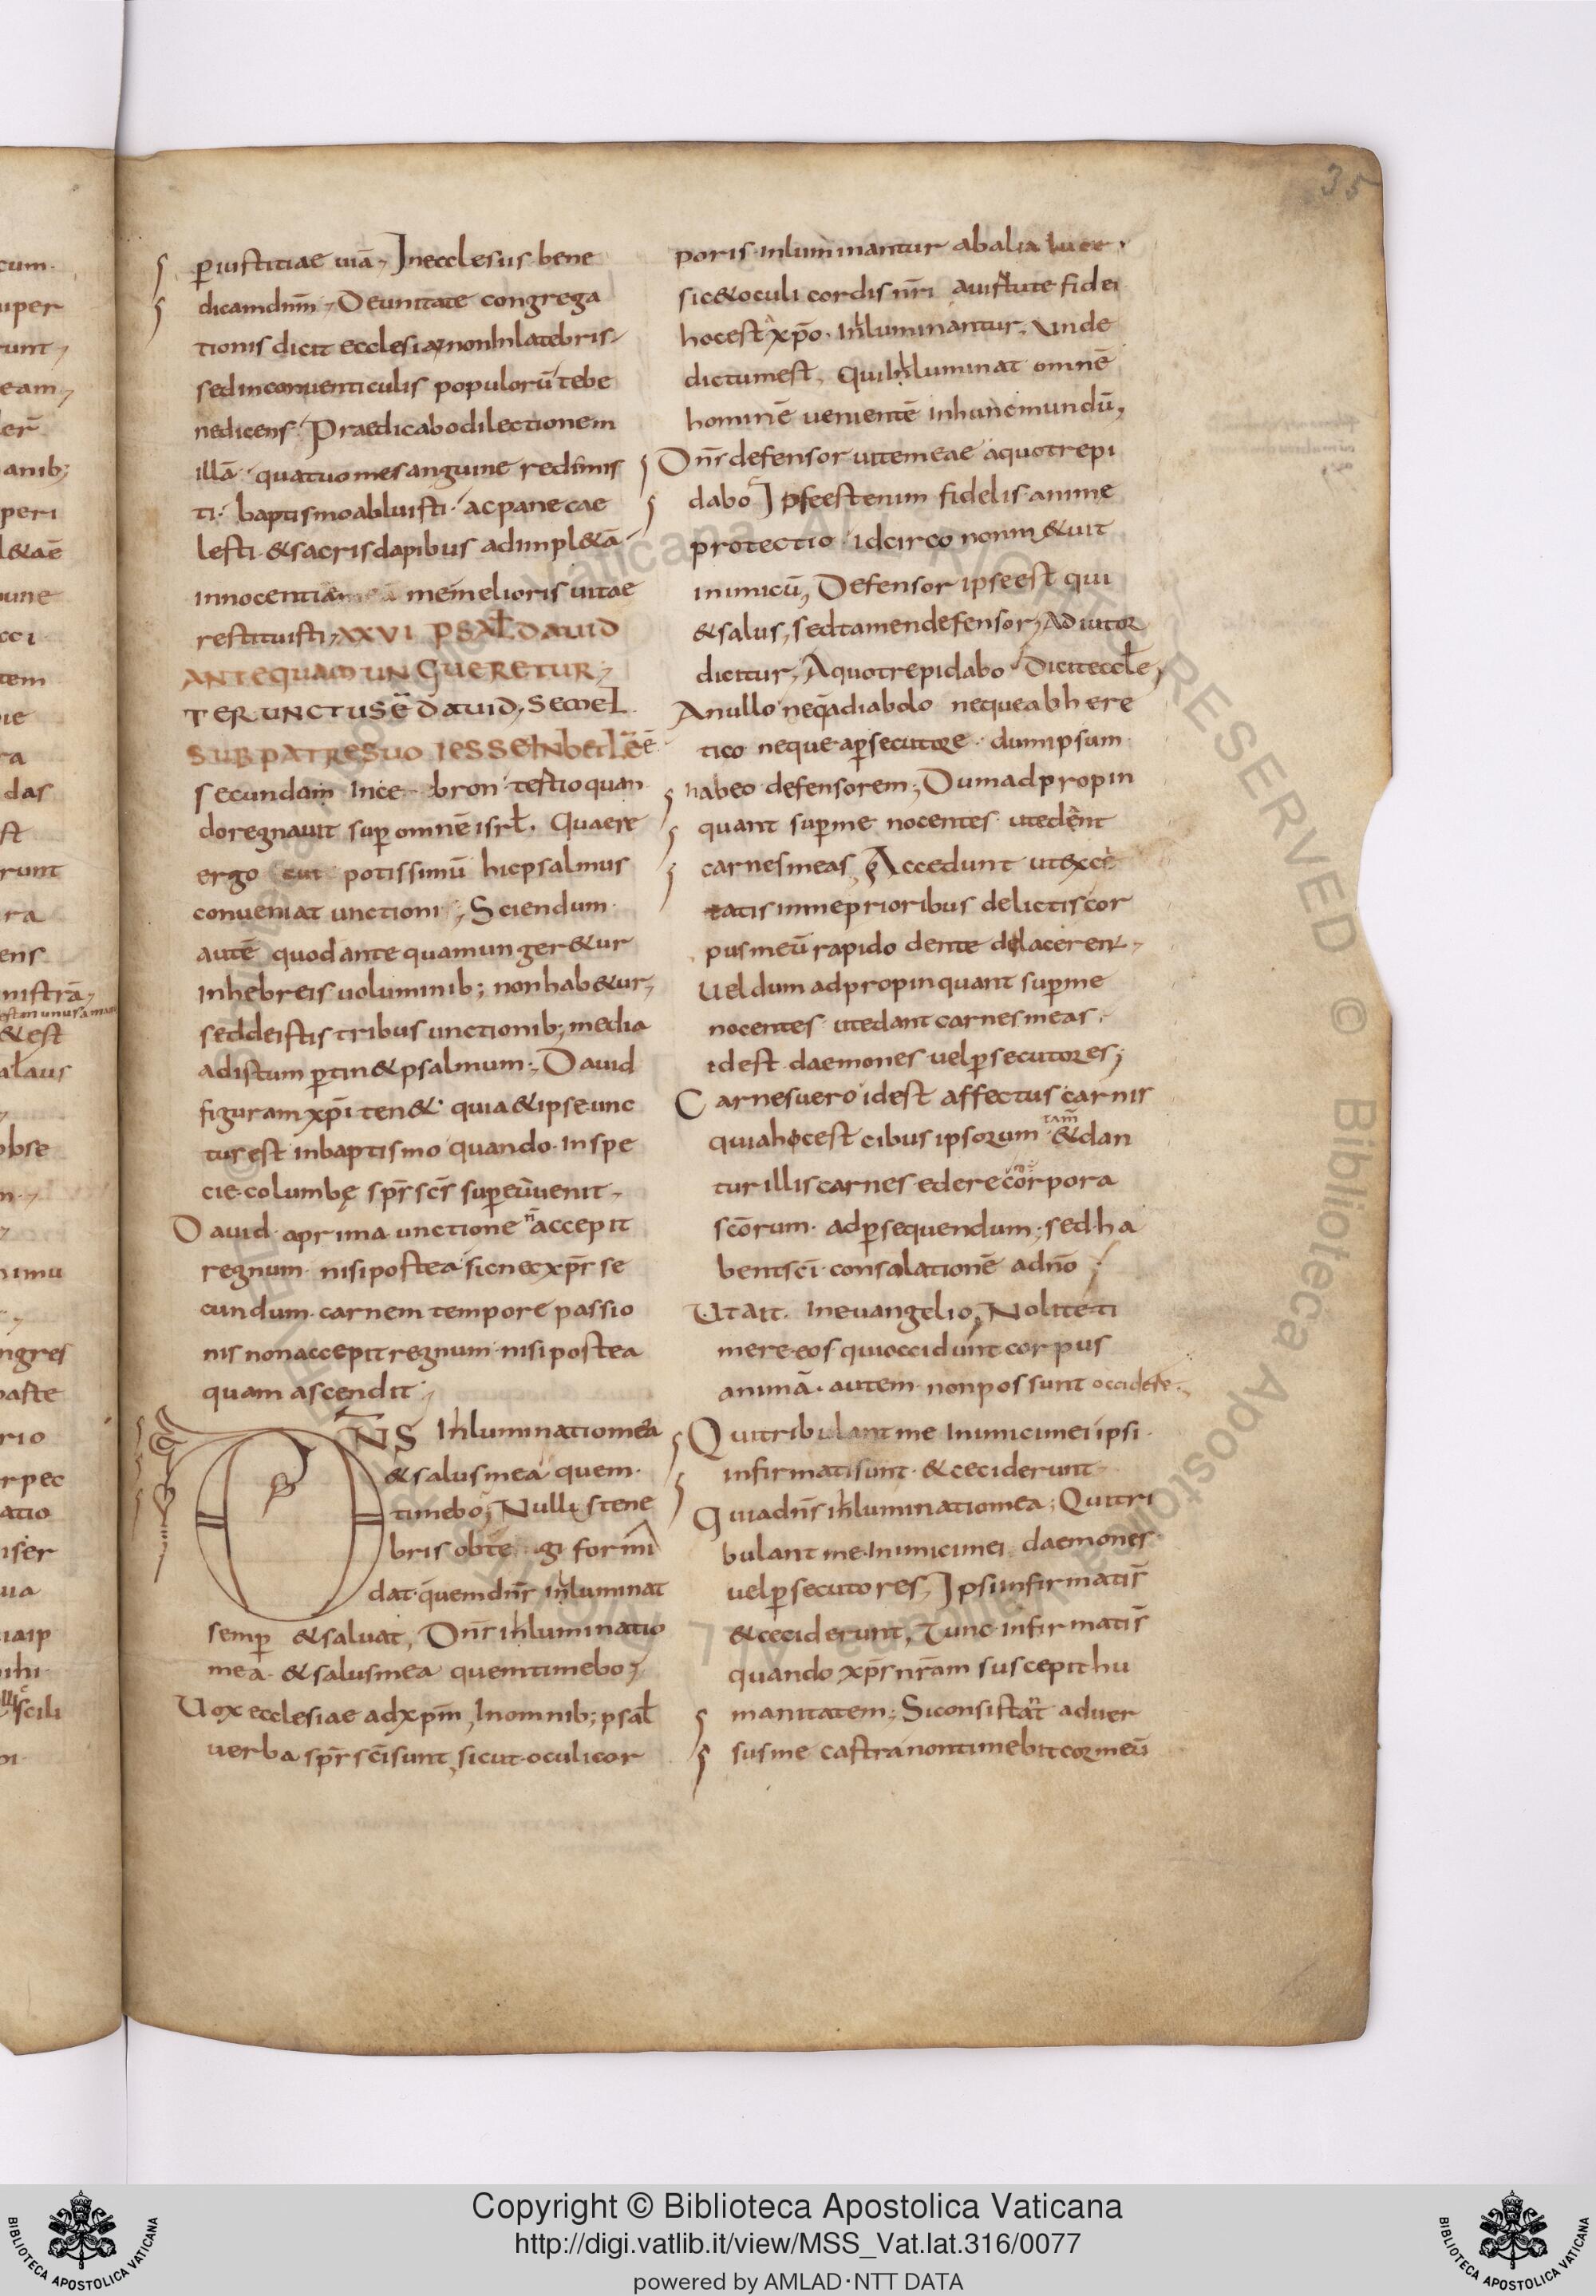 35
ꝑ iustitiae uiā, In ecclesiis bene
dicam dnm̄, De unitate congrega
tionis dicit ecclesia, non in latebris,
sed in conuenticulis populorū te be
nedicens. Praedicabo dilectionem
illā quatuo me sanguine redimis
ti. baptismo abluisti. ac pane cae
lesti. & sacris dapibus adimpl&ā
innocentiā me melioris uitae
restituisti, XXVI PSAL DAUID
ANTEQUAM UNGUERETUR,
TER UNCTUS Ē DAUID, SEMEL
SUB PATRE SUO IESSE IN BETLEĒ
secundam in ce bron testio quan
do regnauit suꝑ omnē isrł. Quaere
ergo cui potissimū hic psalmus
conueniat unctioni; Sciendum
autē quod ante quam unger&ur
in hebreis uoluminib; non hab&ur,
sed de istis tribus unctionib; media
ad istum ꝑtin& psalmum; Dauid
figuram xp̄i ten& quia & ipse unc
tus est in baptismo quando in spe
cie columbę spr̄ scs̄ superuenit,
Dauid a prima unctione n̄ accepit
regnum nisi postea sic nec xpr̄ se
cundum carnem tempore passio
nis non accepit regnum nisi postea
quam ascendit;
DN̄S Inluminatio mea
& salus mea quem
timebo; Nullis tene
bris obte gi formi
dat quem dns̄ inluminat
semꝑ & saluat, Dns̄ inluminatio
mea & salus mea quem timebo,
Uox ecclesiae ad xpm̄, In omnib; psał
uerba spr̄ sc̄i sunt, sicut oculi cor
poris inluminantur ab alia luce.
sic & oculi cordis nr̄i a uirtute fidei
hoc est a xp̄o. Inluminantur, unde
dictum est, Qui inluminat omnē
hominē uenientē in hunc mundū,
Dns̄ defensor uite meae a quo trepi
dabo Ipse est enim fidelis anime
protectio idcirco non m&uit
inimicū, Defensor ipse est qui
& salus, sed tamen defensor, Adiutor
dicitur, A quo trepidabo dicit eccłe,
A nullo neq̄ a diabolo neque ab here
tico neque a ꝑsecutore. dum ipsum
habeo defensorem; Dum adpropin
quant suꝑ me nocentes ut edent
carnes meas, Accedunt ut exce
tatis in me prioribus delictis cor
pus meū rapido dente delacerent,
Uel dum adpropinquant suꝑ me
nocentes ut edant carnes meas.
id est daemones uel ꝑsecutores;
Carnes uero id est affectus carnis
quia hoc est cibus ipsorum tam̄ & dan
tur illis carnes edere corpora
sc̄orum. ad ꝑsequendum, sed ha
bent sc̄i consolationē a dn̄o
Ut ait. In euangelio, Nolite ti
mere eos qui occidunt corpus
animā. autem non possunt occidere.
Qui tribulant me Inimici mei ipsi
infirmati sunt & ceciderunt
Quia dns̄ inluminatio mea; Qui tri
bulant me Inimici mei daemones
uel ꝑsecutores, Ipsi infirmati s̄
& ceciderunt, Tunc infirmati s̄
quando xp̄s nr̄am suscepit hu
manitatem; Si consistant aduer
sus me castra non timebit cor meū
Copyright © Biblioteca Apostolica Vaticana
http://digi.vatlib.it/view/MSS_Vat.lat.316/0077
powered by AMLAD·NTT DATA
BIBLIOTECA APOSTOLICA VATICANA
BIBLIOTECA APOSTOLICA VATICANA